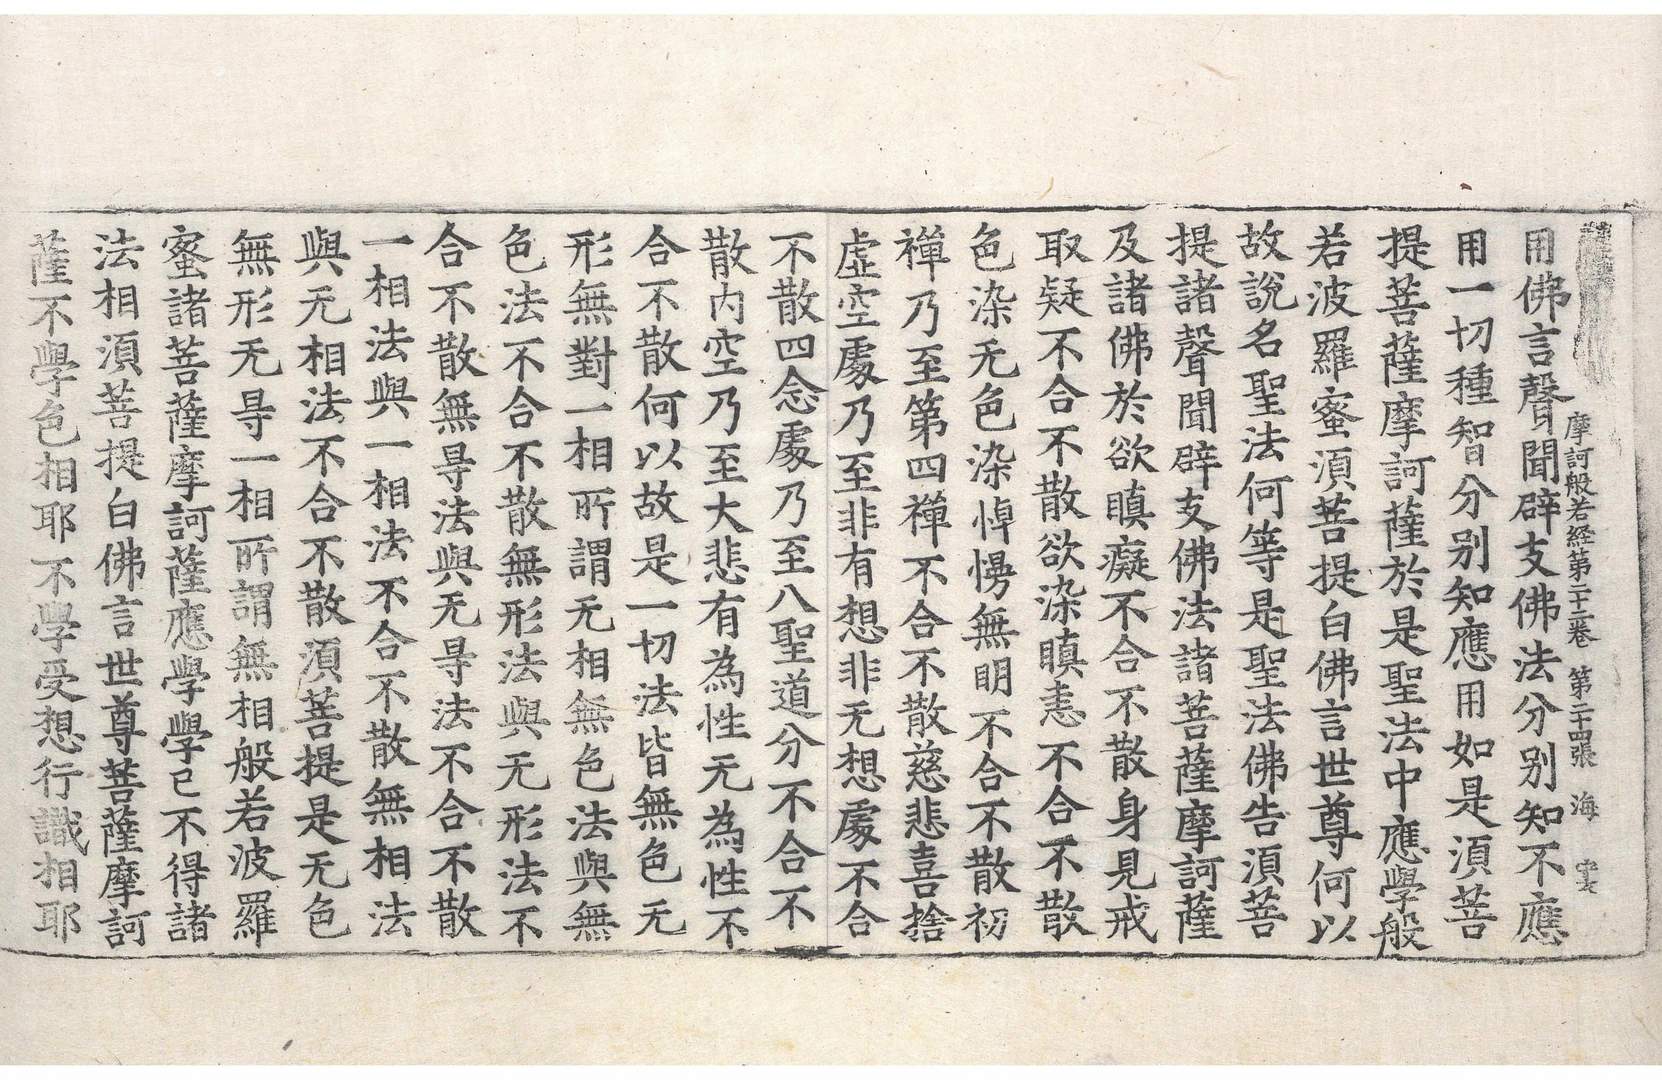 摩訶般若經第二十三卷 第二十四張 海
用佛言聲聞辟支佛法分別知不應
用一切種智分別知應用如是湏菩
提菩薩摩訶薩於是聖法中應學般
若波羅蜜湏菩提白佛言世尊何以
故說名聖法何等是聖法佛告湏菩
提諸聲聞辟支佛法諸菩薩摩訶薩
及諸佛於欲瞋癡不合不散身見戒
取疑不合不散欲染瞋恚不合不散
色染无色染悼慢無明不合不散初
禪乃至第四禪不合不散慈悲喜捨
虛空處乃至非有想非无想處不合
不散四念處乃至八聖道分不合不
散內空乃至大悲有為性无為性不
合不散何以故是一切法皆無色无
形無對一相所謂无相無色法與無
色法不合不散無形法與无形法不
合不散無㝵法與无㝵法不合不散
一相法與一相法不合不散無相法
與无相法不合不散湏菩提是无色
無形无㝵一相所謂無相般若波羅
蜜諸菩薩摩訶薩應學學已不得諸
法相湏菩提白佛言世尊菩薩摩訶
薩不學色相耶不學受想行識相耶